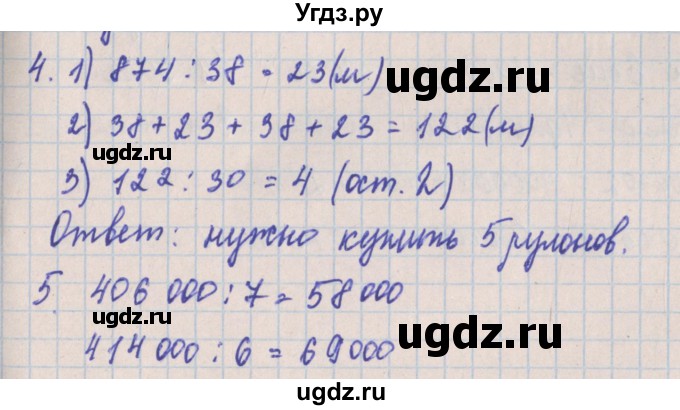 Угдз.ру
4. 1) 874 : 38 = 23 (м)
ugdz.ru
2) 38 + 23 + 38 + 23 = 122 (м)
ugdz.ru
3) 122 : 30 = 4 (ост. 2)
Ответ: нужно купить 5 рулонов.
5 406 000 : 7 = 58 000
ugdz.ru
414 000 : 6 = 69000
ugdz.ru